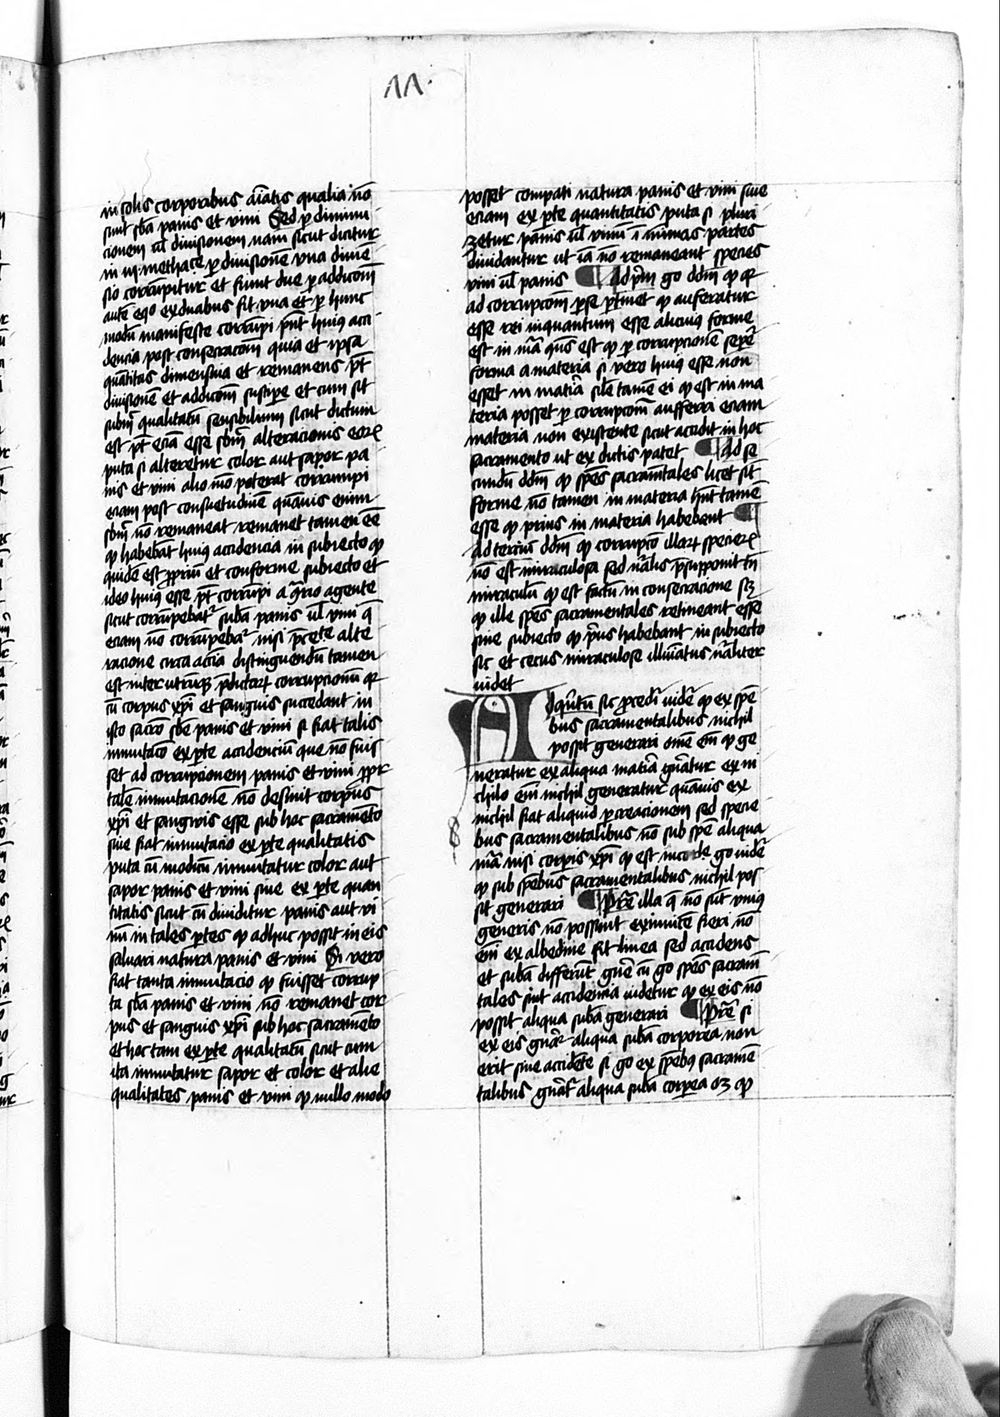 in solis corporibus aiatis qualia no
sunt sba panis et vini Sed p diminu
cionem ul divisionem nam sicut dicitur
in iii methace p divisione una divie
sio corrumpitur et fiunt due p addicom
aute eqo ex duabus fit una et p hunc
modu manifeste corrupi pnt huius acci
dencia post consecracom quia et ipsa
quatitas dimensiva et remanens pt
divisione et addicom suscipe et cum sit
subm qualitatu sensibilium sicut dictum
est pt ecia esse sbm alteracionis eorum
puta si alteretur color aut sapor pa
nis et vini alio mo poterat corrumpi
eciam post consuetudine quavis enim
sbm no remaneat remanet tamen ee
qd habebat huius accidencia in subiecto qd
quide est ppriu et conforme subiecto et
ideo huius esse pt corrupi a qrio agente
sicut corrupebat suba panis ul vini q
eciam no corrupebat nisi pcete alte
racione circa accia distinguendu tamen
est inter utrumque pdictarum corrupcionu qr
cu corpus xpi et sanguis succedant in
isto sacro sbe panis et vini si fiat talis
inmutaco ex pte accidenciu que no fuis
set ad corrupcionem panis et vini ppr
tale inmutacione no desinit corpus
xpi et sangwis esse sub hoc sacrameto
sive fiat inmutacio ex pte qualitatis
puta cu modicu inmutatur color aut
sapor panis et vini sive ex pte quan
titatis sicut cu dividitur panis aut vi
nu in tales ptes qd adhuc possit in eis
salvari natura panis et vini Si vero
fiat tanta inmutacio qd fuisset corrup
ta sba panis et vini no remanet cor
pus et sanguis xpi sub hoc sacrameto
et hoc tam ex pte qualitatu sicut cum
ita inmutatur sapor et color et alie
qualitates panis et vini qd nullo modo
posset compati natura panis et vini sive
eciam ex pte quantitatis puta si pluri
zetur panis ul vinu i nimias partes
dividantur ut ia no remaneant species
vini ul panis Ad pm go ddm qd qr
ad corrupcom p se ptinet qd auferatur
esse rei inquantum esse alicuius forme
est in ma qus est qd p corrupcione sepe
forma a materia si vero huius esse non
esset in matia sile tame ei qd est in ma
teria posset p corrupcom aufferri eciam
materia non existente sicut accidit in hoc
sacramento ut ex dictis patet Ad se
cundu ddm qd spes sacramtales licet sit
forme no tamen in materia hnt tame
esse qd prius in materia habebant
Ad terciu ddm qd corrupco illarum specierum
no est miraculosa sed nalis psupponit tn
miraculu qd est factu in consecracione scz
qd ille spes sacramentales retineant esse
sine subiecto qd prius habebant in subiecto
sic et cecus miraculose illuminatus naliter
videt
Ad quintu sic procedr vide qd ex spe
bus sacramentalibus nichil
possit generari ome em qd ge
neratur ex aliqua matia gnatur ex ni
chilo em nichil generatur quavis ex
nichil fiat aliquid p creacionem sed specie
bus sacramentalibus no sub spe aliqua
ma nisi corpis xpi qd est incorr go vide
qd sub spebus sacramentalibus nichil pos
sit generari Pre illa q no sut unius
generis no possunt ex invice fieri no
em ex albedine fit linea sed accidens
et suba differut gne cu go spes sacram
tales sint accidencia videtur qd ex eis no
possit aliqua suba generari Pre si
ex eis gnar aliqua suba corporea non
erit sine accidete si go ex spebus sacrame
talibus gnat aliqua suba corpea oz qd